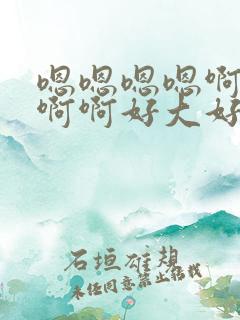 嗯嗯嗯嗯啊
啊啊好大好
石垣雄想
未经同意禁止转载